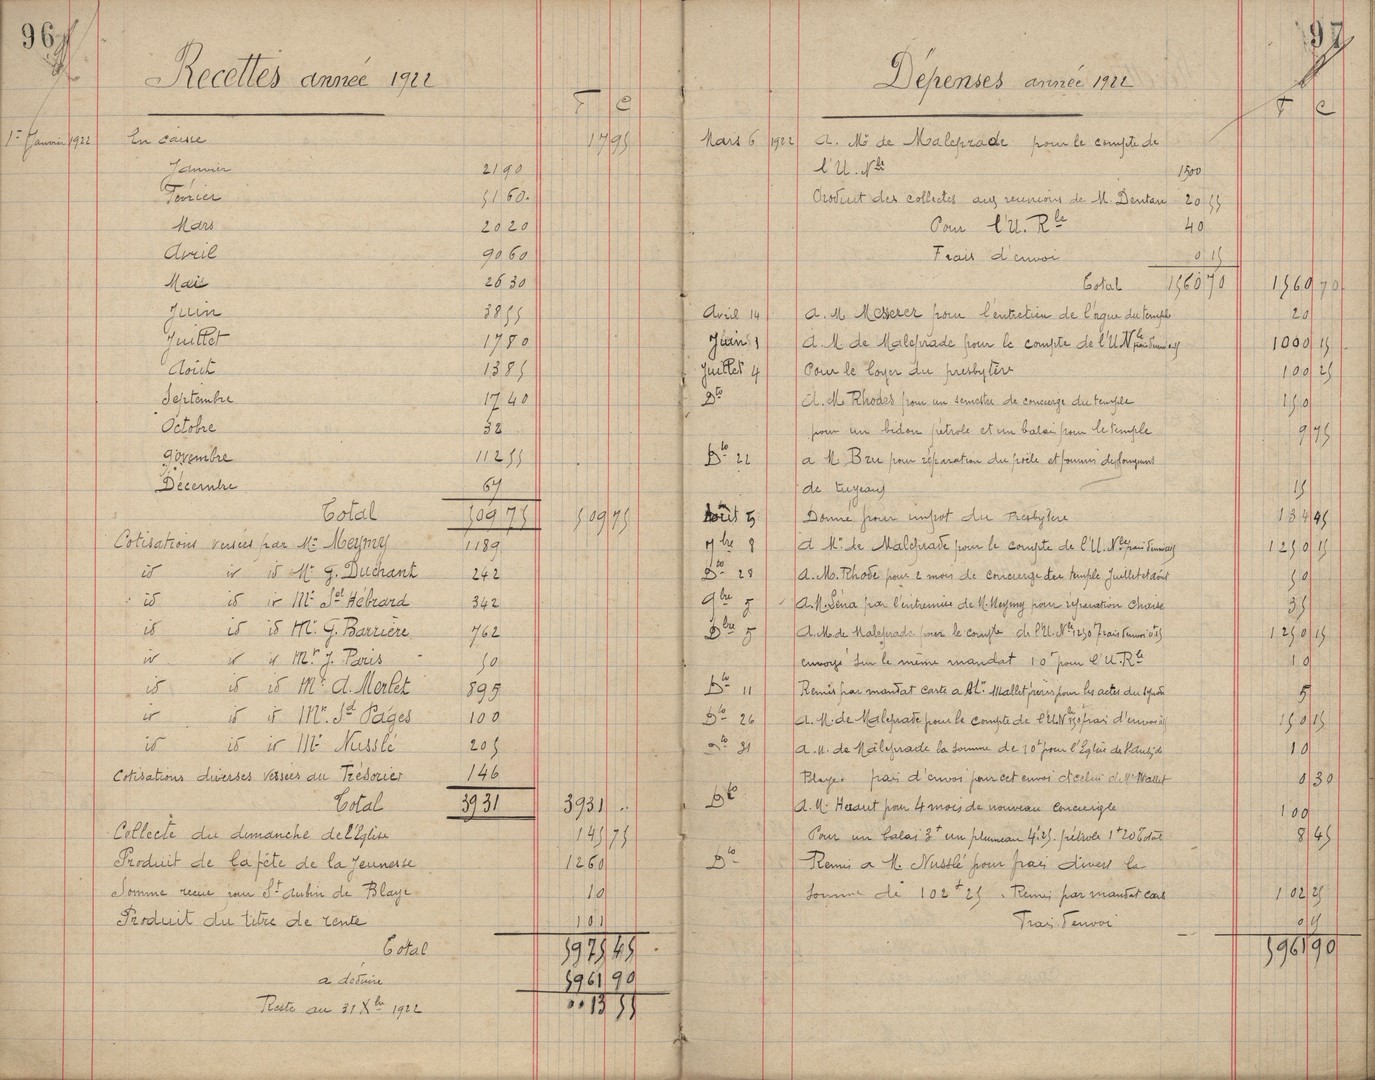 96
Recettes année 1922
F C
1er Janvier 1922 En caisse 17 95
Janvier 21 90
Février 51 60.
Mars 20 20
Avril 90 60
Mai 26 30
Juin 38 55
Juillet 17 80
Août 13 85
Septembre 17 40
Octobre 32
9ovembre 112 55
Décembre 67
Total 509 75 509 75
Cotisations versées par Mr Meymy 1189
id id id Mr G. Duchant 242
id id id Mr Sel Hébrard 342
id id id Mr G. Barrière 762
id id id Mr J. Paris 50
id id id Mr A. Merlet 895
id id id Mr. Sd Pagès 100
id id id Mr Nusslé 205
Cotisations diverses versées au Trésorier 146
Total 3931 3931 ..
Collecte du dimanche de l'Eglise 145 75
Produit de la fête de la Jeunesse 1260
Somme recue pour St Aubin de Blaye 10
Produit du titre de rente 101
Total 5975 45
a déduire 5961 90
Reste au 31 Xbre 1922 0013 55
97
Dépenses année 1922
F C
Mars 6 1922 A. Mr de Maleprade pour le compte de
l'U. Nle 1500
Produit des collectes aux reunions de M. Dentan 20 55
Pour l'U. Rle 40
Frais d'envoi 0 15
Total 1560 70 1560 70
Avril 14 A. M Messrer pour l'entretien de l'orgue du temple 20
Juin 1 A. M. de Maleprade pour le compte de l'U Nle frais d'envoi 1000 15
Juillet 4 Pour le loyer du presbytère 100 25
Dto A. M Rhodes pour un semestre de concierge du temple 150
pour un bidon pétrole et un balai pour le temple 9 75
Dto 22 a M Bru pour réparation du poêle et
de tuyeaux 15
Août 5 Donné pour impot du Presbytère 134 45
7bre 8 A Mr. de Maleprade pour le compte de l'U. Nle frais d'envoi 1250 15
Dto 28 A. M. Rhode pour 2 mois de concierge du temple Juillet et Août 50
9bre 5 A. M. Séna par l'entremise de M. Meymy pour réparation chaise 35
Dbre 5 A. M. de Maleprade pour le compte de l'U. Nle 1250 f frais d'envoi 0f15 1250 15
envoyé sur le même mandat 10f pour l'U. Rle 10
Dto 11 Remis par mandat carte a Mr Mallet frères pour les actes du Synode 5
Dto 26 A. M. de Maleprade pour le compte de l'U Nle 150f frais d'envoi 0.15 150 15
Dto 31 A. M. de Maleprade la somme de 10f pour l'Eglise de
Blaye. frais d'envoi pour cet envoi et celui de Mr Mallet 0 30
Dto A. M. Heraut pour 4 mois de nouveau concierge 100
Pour un balai 3f un plumeau 4f.25. pétrole 1f20 Total 8 45
Dto Remis a M. Nusslé pour frais divers la
somme de 102f25. Remis par mandat carte 102 25
Frais d'envoi
5961 90